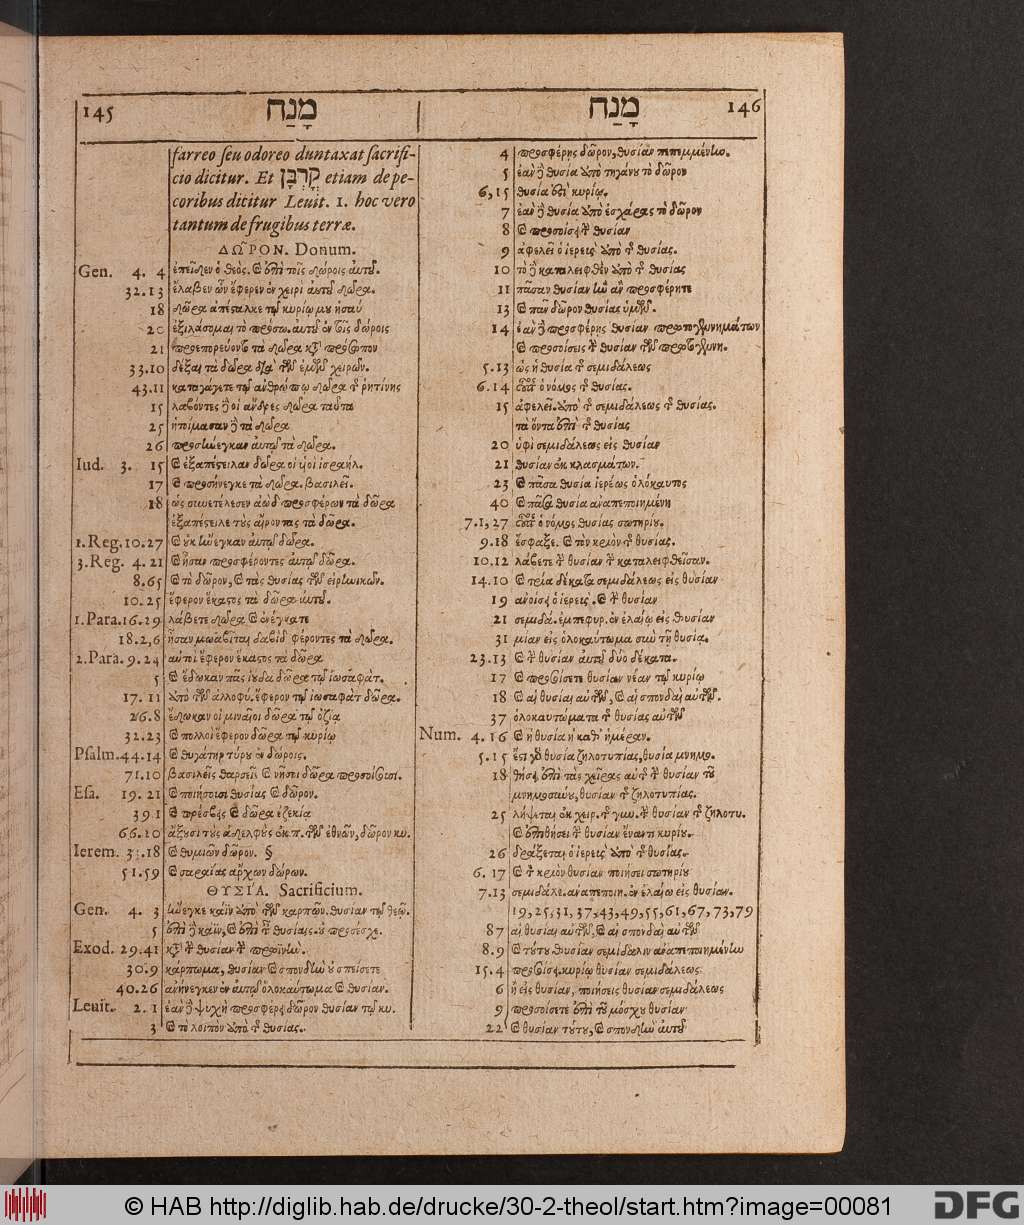 145 מָנַח
farreo seu odoreo duntaxat sacrifi-
cio dicitur. Et קָרְבָּן etiam de pe-
coribus dicitur Leuit. 1. hoc vero
tantum de frugibus terræ.
ΔΩ͂ΡΟΝ. Donum.
Gen. 4. 4 ἐπεῖδεν ὁ θεὸς. καὶ ἐπὶ τοῖς δώροις αὐτοῦ.
32.13 ἔλαβεν ὧν ἔφερεν ἐν χειρὶ αὐτοῦ δῶρα.
18 δῶρα ἀπέσταλκε τῷ κυρίῳ μου ἠσαῦ
20 ἐξιλάσομαι τὸ πρόσω. αὐτοῦ ἐν τοῖς δώροις
21 προεπορεύοντο τὰ δῶρα κατὰ πρόσωπον
33.10 δέξαι τὰ δῶρα διὰ τῶν ἐμῶν χειρῶν.
43.11 καταγάγετε τῷ ἀνθρώπῳ δῶρα τῆς ῥητίνης
15 λαβόντες δὲ οἱ ἄνδρες δῶρα ταῦτα
25 ἡτοίμασαν δὲ τὰ δῶρα
26 προσήνεγκαν αὐτῷ τὰ δῶρα.
Iud. 3. 15 καὶ ἐξαπέστειλαν δῶρα οἱ υἱοὶ ἰσραήλ.
17 καὶ προσήνεγκε τὰ δῶρα. βασιλεῖ.
18 ὡς συνετέλεσεν ἀὼδ προσφέρων τὰ δῶρα
ἐξαπέστειλε τοὺς αἴροντας τὰ δῶρα.
1. Reg. 10.27 καὶ οὐκ ἤνεγκαν αὐτῷ δῶρα.
3. Reg. 4. 21 καὶ ἦσαν προσφέροντες αὐτῷ δῶρα.
8.65 καὶ τὸ δῶρον, καὶ τὰς θυσίας τῶν εἰρηνικῶν.
10.25 ἔφερον ἕκαστος τὰ δῶρα αὐτοῦ.
1. Para. 16.29 λάβετε δῶρα καὶ ἐνέγκατε
18.2,6 ἦσαν μωαβῖται δαβὶδ φέροντες τὰ δῶρα.
2. Para. 9.24 αὐτοὶ ἔφερον ἕκαστος τὰ δῶρα
5 καὶ ἔδωκαν πᾶς ἰούδα δῶρα τῷ ἰωσαφὰτ.
17. 11 ἀπὸ τῶν ἀλλοφύ. ἔφερον τῷ ἰωσαφὰτ δῶρα.
26.8 ἔδωκαν οἱ μιναῖοι δῶρα τῷ ὀζία
32.23 καὶ πολλοὶ ἔφερον δῶρα τῷ κυρίῳ
Psalm. 44.14 καὶ θυγάτηρ τύρου ἐν δώροις.
71.10 βασιλεῖς θαρσεῖς καὶ νῆσοι δῶρα προσοίσουσι.
Esa. 19. 21 καὶ ποιήσουσι θυσίας καὶ δῶρον.
39 1 καὶ πρέσβεις καὶ δῶρα ἐζεκία
66.20 ἄξουσι τοὺς ἀδελφοὺς ἐκ π. τῶν ἐθνῶν, δῶρον κυ.
Ierem. 3:.18 καὶ θυμιῶν δῶρον. §
51.59 καὶ σαραίας ἄρχων δώρων.
ΘΥΣΊΑ. Sacrificium.
Gen. 4. 3 ἤνεγκε κάϊν ἀπὸ τῶν καρπῶν. θυσίαν τῷ θεῷ.
5 ἐπὶ δὲ κάϊν, καὶ ἐπὶ ταῖς θυσίαις. οὐ προσέσχε.
Exod. 29.41 κατὰ τὴν θυσίαν τὴν πρωϊνὴν.
30.9 κάρπωμα, θυσίαν καὶ σπονδὴν οὐ σπείσετε
40.26 ἀνήνεγκεν ἐν αὐτῷ ὁλοκαύτωμα καὶ θυσίαν.
Leuit. 2. 1 ἐὰν δὲ ψυχὴ προσφέρῃ δῶρον θυσίαν τῷ κυ.
3 καὶ τὸ λοιπὸν ἀπὸ τῆς θυσίας.
מָנַח 146
4 προσφέρῃς δῶρον, θυσίαν πεπεμμένην.
5 ἐὰν δὲ θυσία ἀπὸ τηγάνου τὸ δῶρον
6,15 θυσία ἐστὶ κυρίῳ.
7 ἐὰν δὲ θυσία ἀπὸ ἐσχάρας τὸ δῶρον
8 καὶ προσοίσει τὴν θυσίαν
9 ἀφελεῖ ὁ ἱερεὺς ἀπὸ τῆς θυσίας.
10 τὸ δὲ καταλειφθὲν ἀπὸ τῆς θυσίας
11 πᾶσαν θυσίαν ἣν ἂν προσφέρητε
13 καὶ πᾶν δῶρον θυσίας ὑμῶν.
14 ἐὰν δὲ προσφέρῃς θυσίαν πρωτογεννημάτων
καὶ προσοίσεις τὴν θυσίαν τῶν πρωτογεννη.
5.13 ὡς ἡ θυσία τῆς σεμιδάλεως
6.14 οὗτος ὁ νόμος τῆς θυσίας.
15 ἀφελεῖ. ἀπὸ τῆς σεμιδάλεως τῆς θυσίας.
τὰ ὄντα ἐπὶ τῆς θυσίας
20 ὑφὶ σεμιδάλεως εἰς θυσίαν
21 θυσίαν ἐκ κλασμάτων.
23 καὶ πᾶσα θυσία ἱερέως ὁλόκαυτος
40 καὶ πᾶσα θυσία ἀναπεποιημένη
7.1,27 οὗτος ὁ νόμος θυσίας σωτηρίου.
9.18 ἔσφαξε. καὶ τὸν κριὸν τῆς θυσίας.
10.12 λάβετε τὴν θυσίαν τὴν καταλειφθεῖσαν.
14.10 καὶ τρία δέκατα σεμιδάλεως εἰς θυσίαν
19 ἀνοίσει ὁ ἱερεὺς. καὶ τὴν θυσίαν
21 σεμιδά. ἐμπεφυρ. ἐν ἐλαίῳ εἰς θυσίαν
31 μίαν εἰς ὁλοκαύτωμα σὺν τῇ θυσίᾳ.
23.13 καὶ τὴν θυσίαν αὐτοῦ δύο δέκατα.
17 καὶ προσοίσετε θυσίαν νέαν τῷ κυρίῳ
18 καὶ αἱ θυσίαι αὐτῶν, καὶ αἱ σπονδαὶ αὐτῶν.
37 ὁλοκαυτώματα τῆς θυσίας αὐτῶν
Num. 4. 16 καὶ ἡ θυσία ἡ καθ' ἡμέραν.
5.15 ἔστι γὰρ θυσία ζηλοτυπίας, θυσία μνημο.
18 θήσει ἐπὶ τὰς χεῖρας αὐτῆς τὴν θυσίαν τοῦ
μνημοσύνου, θυσίαν τῆς ζηλοτυπίας.
25 λήψεται ἐκ χειρ. τῆς γυν. τὴν θυσίαν τῆς ζηλοτυ.
καὶ ἐπιθήσει τὴν θυσίαν ἔναντι κυρίου.
26 δράξεται ὁ ἱερεὺς ἀπὸ τῆς θυσίας.
6. 17 καὶ τὸν κριὸν θυσίαν ποιήσει σωτηρίου
7.13 σεμιδάλε. ἀναπεποιη. ἐν ἐλαίῳ εἰς θυσίαν.
19,25,31,37,43,49,55,61,67,73,79
87 αἱ θυσίαι αὐτῶν, καὶ αἱ σπονδαὶ αὐτῶν
8.9 καὶ τούτου θυσίαν σεμίδαλιν ἀναπεποιημένην
15.4 προσοίσει. κυρίῳ θυσίαν σεμιδάλεως
6 ἢ εἰς θυσίαν, ποιήσεις θυσίαν σεμιδάλεως
9 προσοίσετε ἐπὶ τοῦ μόσχου θυσίαν
22 καὶ θυσίαν τούτου, καὶ σπονδὴν αὐτοῦ
© HAB http://diglib.hab.de/drucke/30-2-theol/start.htm?image=00081
DFG